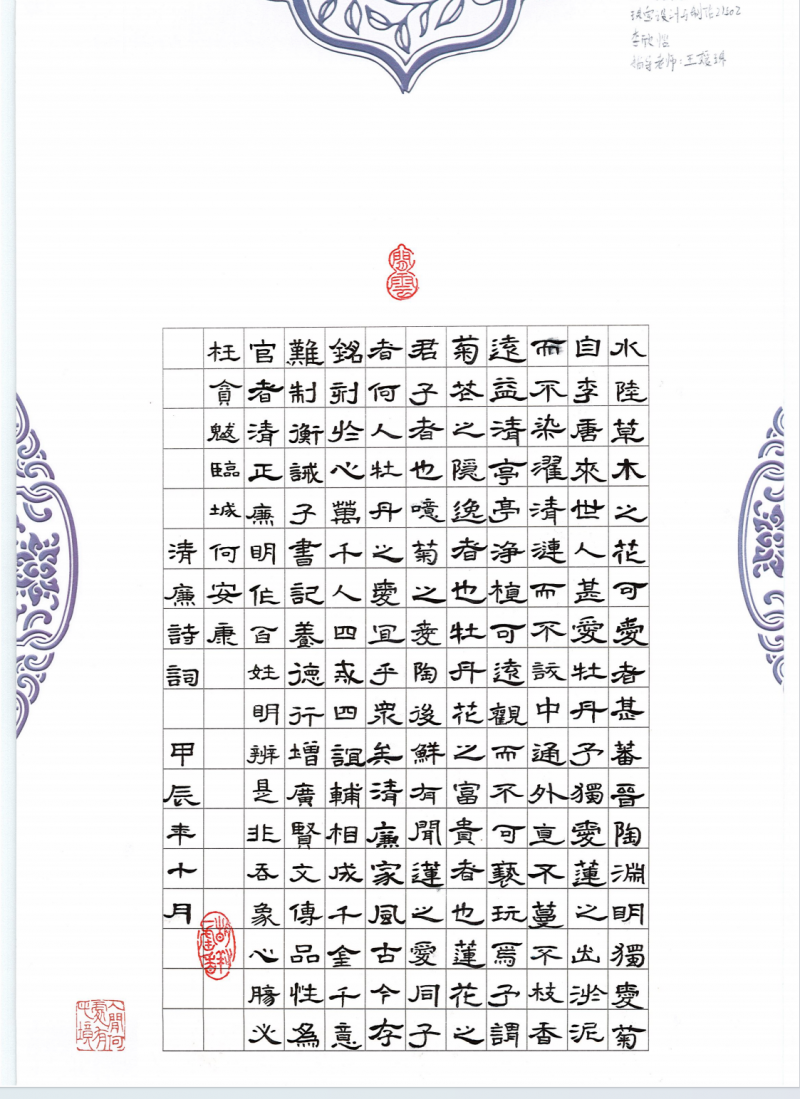 珠宝设计与制作21502
李欣
指导老师:王
水陸草木之花可愛者甚蕃晉陶淵明獨愛菊
自李唐來世人甚愛牡丹予獨愛蓮之出淤泥
而不染濯清漣而不妖中通外直不蔓不枝香
遠益清亭亭淨植可遠觀而不可褻玩焉予謂
菊花之隱逸者也牡丹花之富貴者也蓮花之
君子者也噫菊之愛陶後鮮有聞蓮之愛同予
者何人牡丹之愛宜乎眾矣清廉家風古今存
銘刻於心萬千人四戒四誼輔相成千金千意
難制衡誡子書記養德行增廣賢文傳品性為
官者清正廉明作百姓明辨是非吞象心腸必
枉貪魃臨城何安康
清廉詩詞 甲辰年十月
人間何處有此境